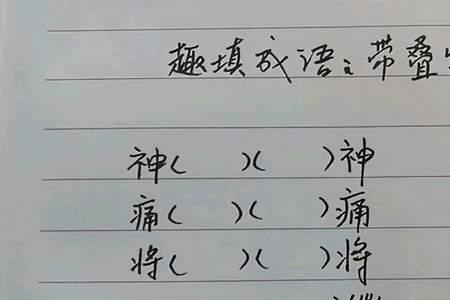 趣填成语:带叠
神(  )(  )神
痛(  )(  )痛
将(  )(  )将